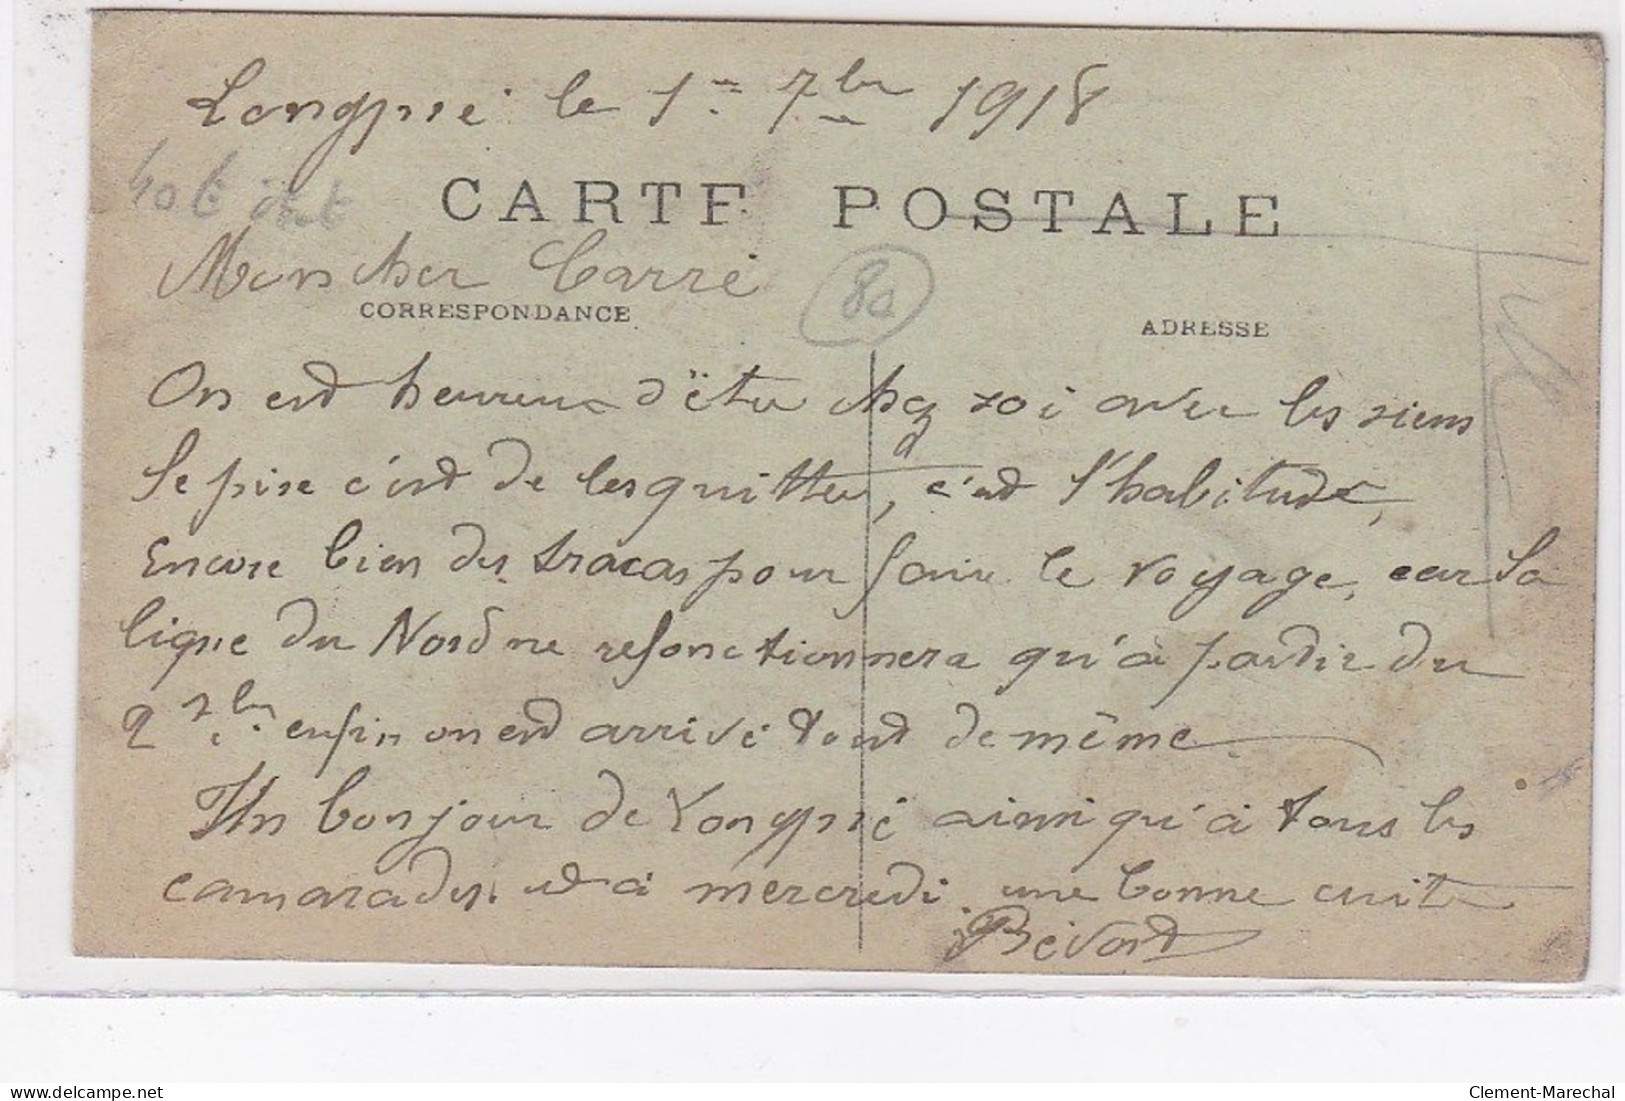 Longpré le 1er 7bre 1918
CARTE POSTALE
Mon cher Carré
80
CORRESPONDANCE
ADRESSE
On est heureux d'être chez soi avec les siens
le pire c'est de les quitter, c'est l'habitude,
Encore bien des tracas pour faire le voyage, car la
ligne du Nord ne refonctionnera qu'à partir du
2 7bre enfin on est arrivé tout de même.
Un bonjour de Longpré ainsi qu'à tous les
camarades. et à mercredi une bonne cuite
Bévort
delcampe.net
Clement-Marechal